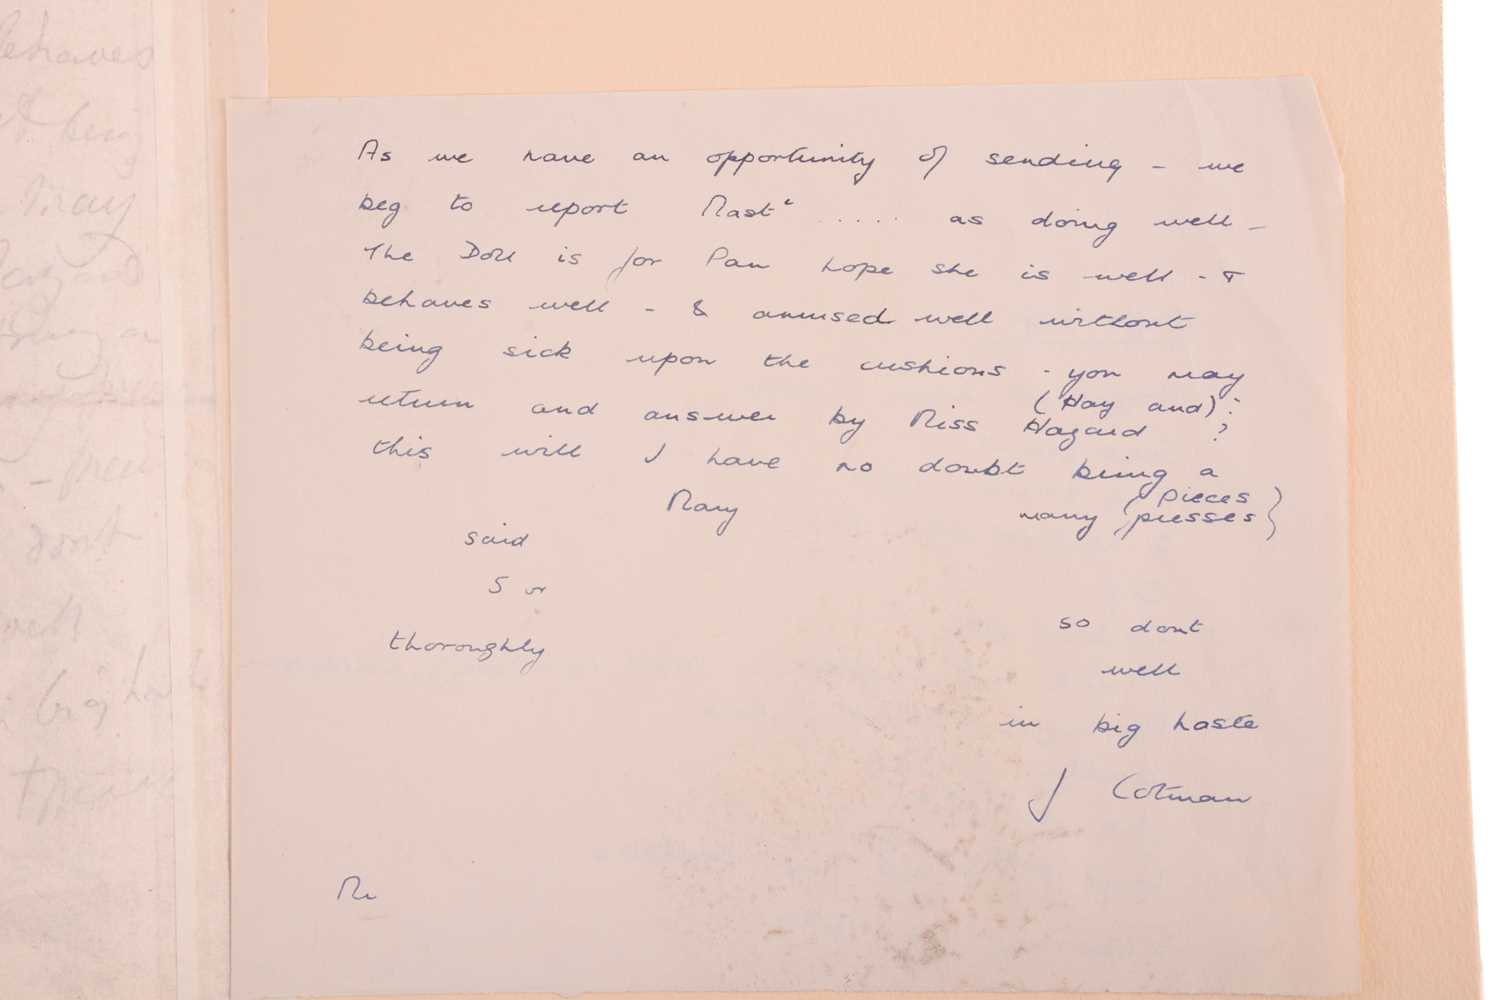 behaves
being
may
dont
well
big
As we have an opportunity of sending - we
beg to report Mastr ..... as doing well -
The Doll is for Pan hope she is well - &
behaves well - & amused well without
being sick upon the cushions - you may
(Hay and) ?
return and answer by Miss Hazard ?
this will I have no doubt being a
(pieces)
Mary many (presses)
said
S or
so dont
thoroughly
well
in big haste
J Cotman